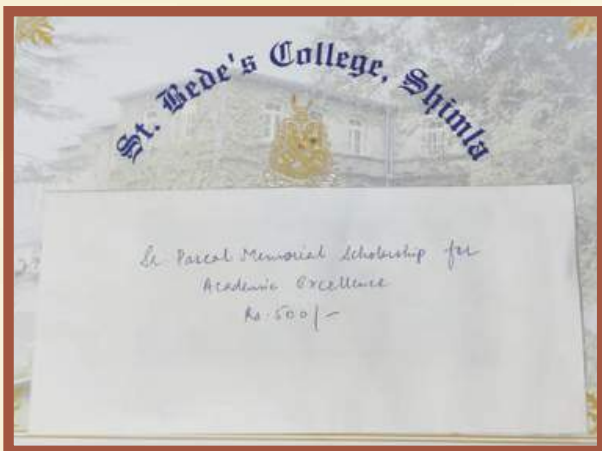 St. Bede's College, Shimla
Sr Pascal Memorial Scholarship for
Academic Excellence
Rs. 500/-